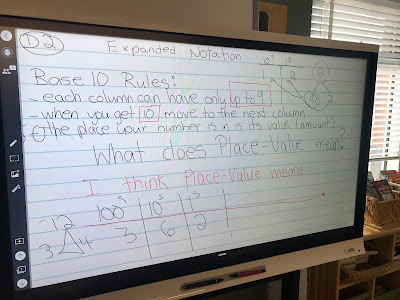 D2 Expanded Notation
10s 1s
1 2 12
10 2
Base 10 Rules:
- each column can have only up to 9
- when you get 10 move to the next column
- the place your number is in is its value (amount)
What does Place-Value mean?
I think Place-Value means
-12 100s 10s 1s
3 4 3 6 2